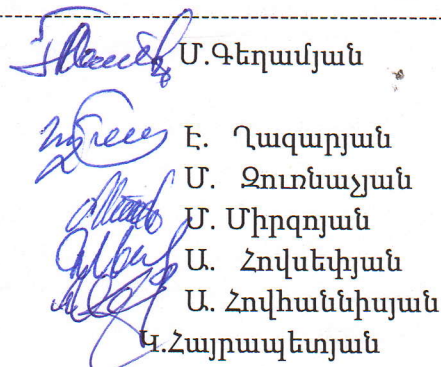 Մ.Գեղամյան
Է. Ղազարյան
Մ. Զուռնաչյան
Մ. Միրզոյան
Ա. Հովսեփյան
Ա. Հովհաննիսյան
Կ.Հայրապետյան